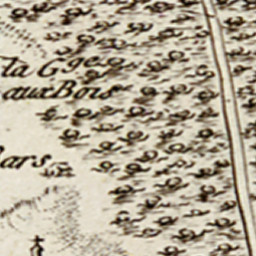 la Gge
aux Bons
Bars